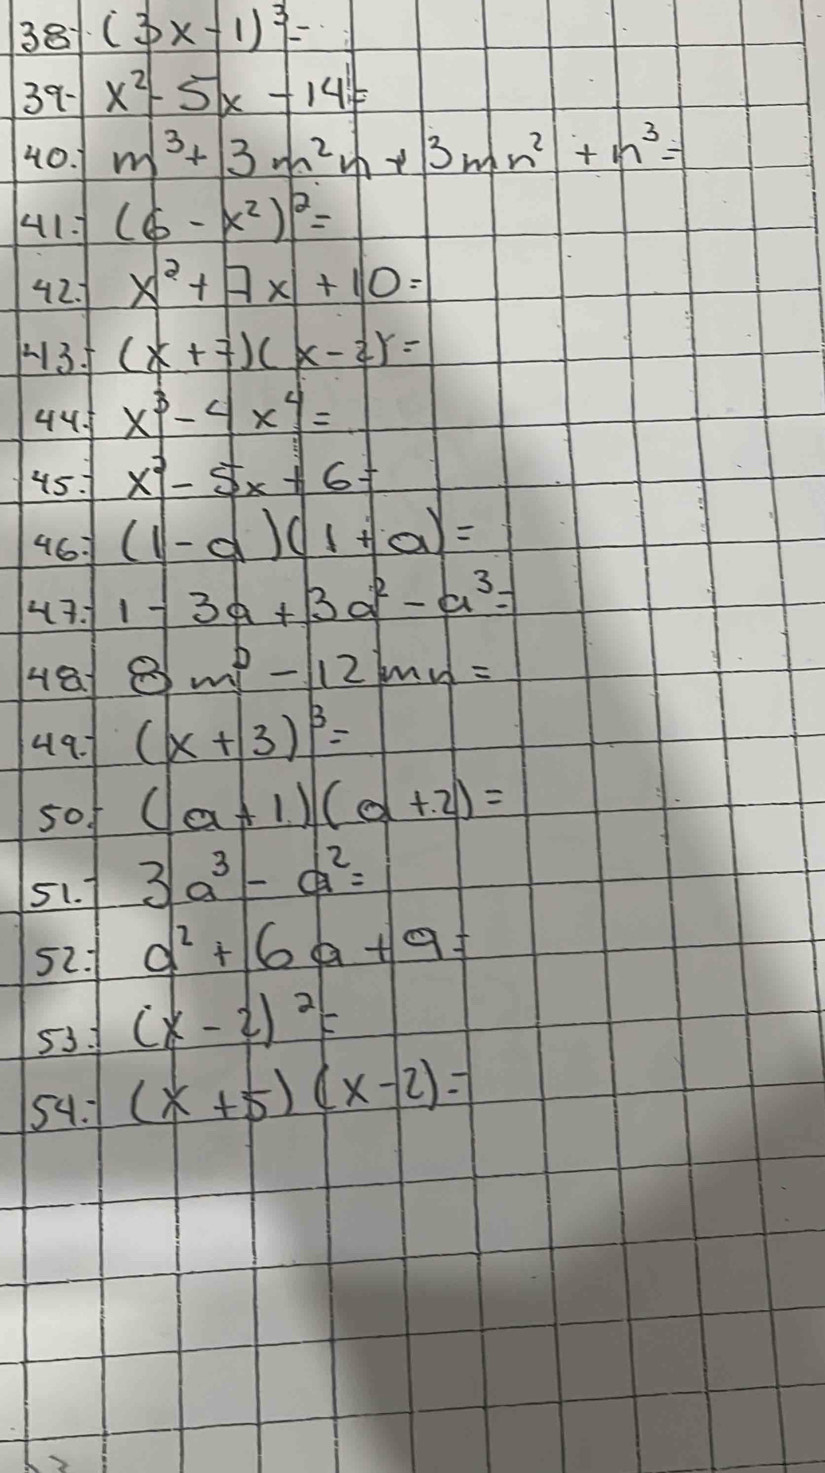 38.- (3x-1)³=
39.- x²-5x-14=
40.- m³+3m²n+3mn²+n³=
41.- (6-x²)²=
42.- x²+7x+10=
43.- (x+7)(x-2)=
44.- x³-4x⁴=
45.- x²-5x+6=
46.- (1-a)(1+a)=
47.- 1-3a+3a²-a³=
48.- 8m² -12mn=
49.- (x+3)³=
50.- (a+1)(a+2)=
51.- 3a³-a²=
52.- a²+6a+9=
53.- (x-2)²=
54.- (x+5)(x-2)=